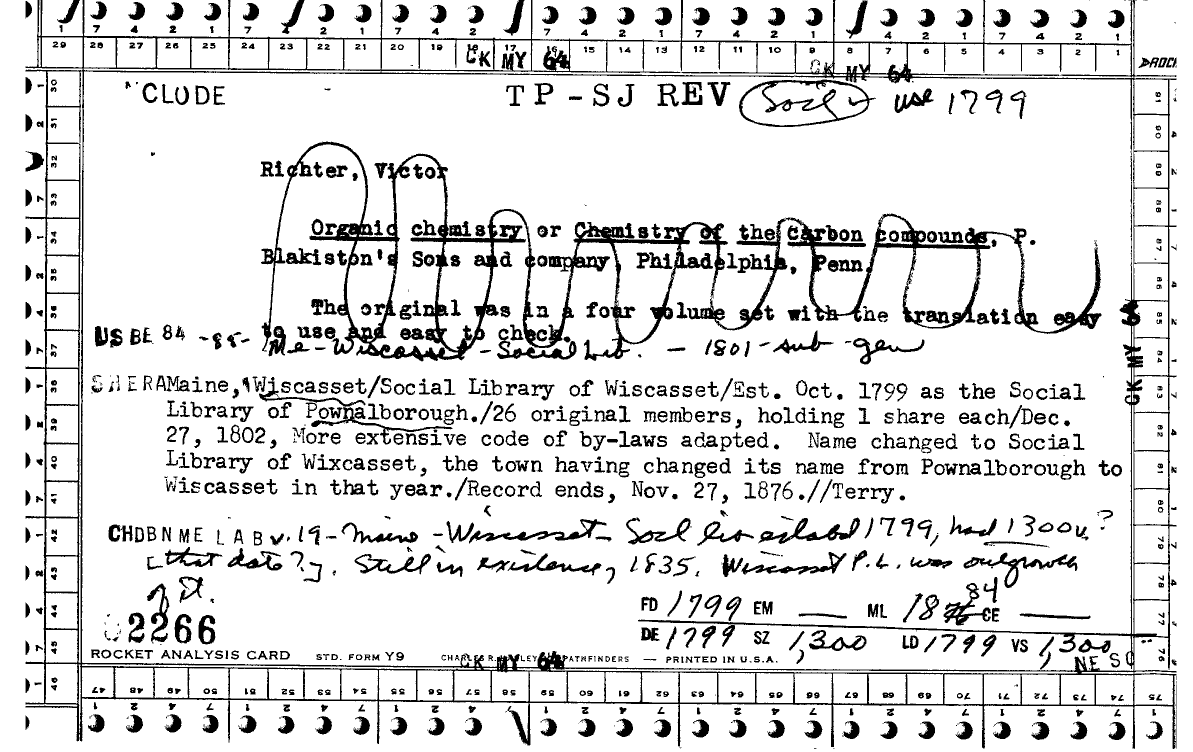 7 4 2 1 7 4 2 1 7 4 2 1 7 4 2 1 7 4 2 1 7 4 2 1 7 4 2 1
29 28 27 26 25 24 23 22 21 20 19 18 17 16 15 14 13 12 11 10 9 8 7 6 5 4 3 2 1
CK MY 64 CK MY 64
CLUDE TP-SJ REV Socl use 1799
Richter, Victor
Organic chemistry or Chemistry of the carbon compounds, P.
Blakiston's Sons and company, Philadelphia, Penn.
The original was in a four volume set with the translation easy
to use and easy to check.
US BE 84 -85- Me-Wiscasset-Social Lib. - 1801-sub-gen
SHERA Maine, Wiscasset/Social Library of Wiscasset/Est. Oct. 1799 as the Social
Library of Pownalborough./26 original members, holding 1 share each/Dec.
27, 1802, More extensive code of by-laws adapted. Name changed to Social
Library of Wixcasset, the town having changed its name from Pownalborough to
Wiscasset in that year./Record ends, Nov. 27, 1876.//Terry.
CHDBNME LAB v. 19- Maine -Wiscasset- Socl lib estabd 1799, had 1300v.?
[that date?]. Still in existence, 1835. Wiscasset P.L. was outgrowth
of it.
84
FD 1799 EM — ML 1876 CE —
2266
DE 1799 SZ 1,300 LD 1799 VS 1,300
NE SO
ROCKET ANALYSIS CARD STD. FORM Y9 PATHFINDERS — PRINTED IN U.S.A.
CK MY 64
CK MY 64
47 48 49 50 51 52 53 54 55 56 57 58 59 60 61 62 63 64 65 66 67 68 69 70 71 72 73 74 75